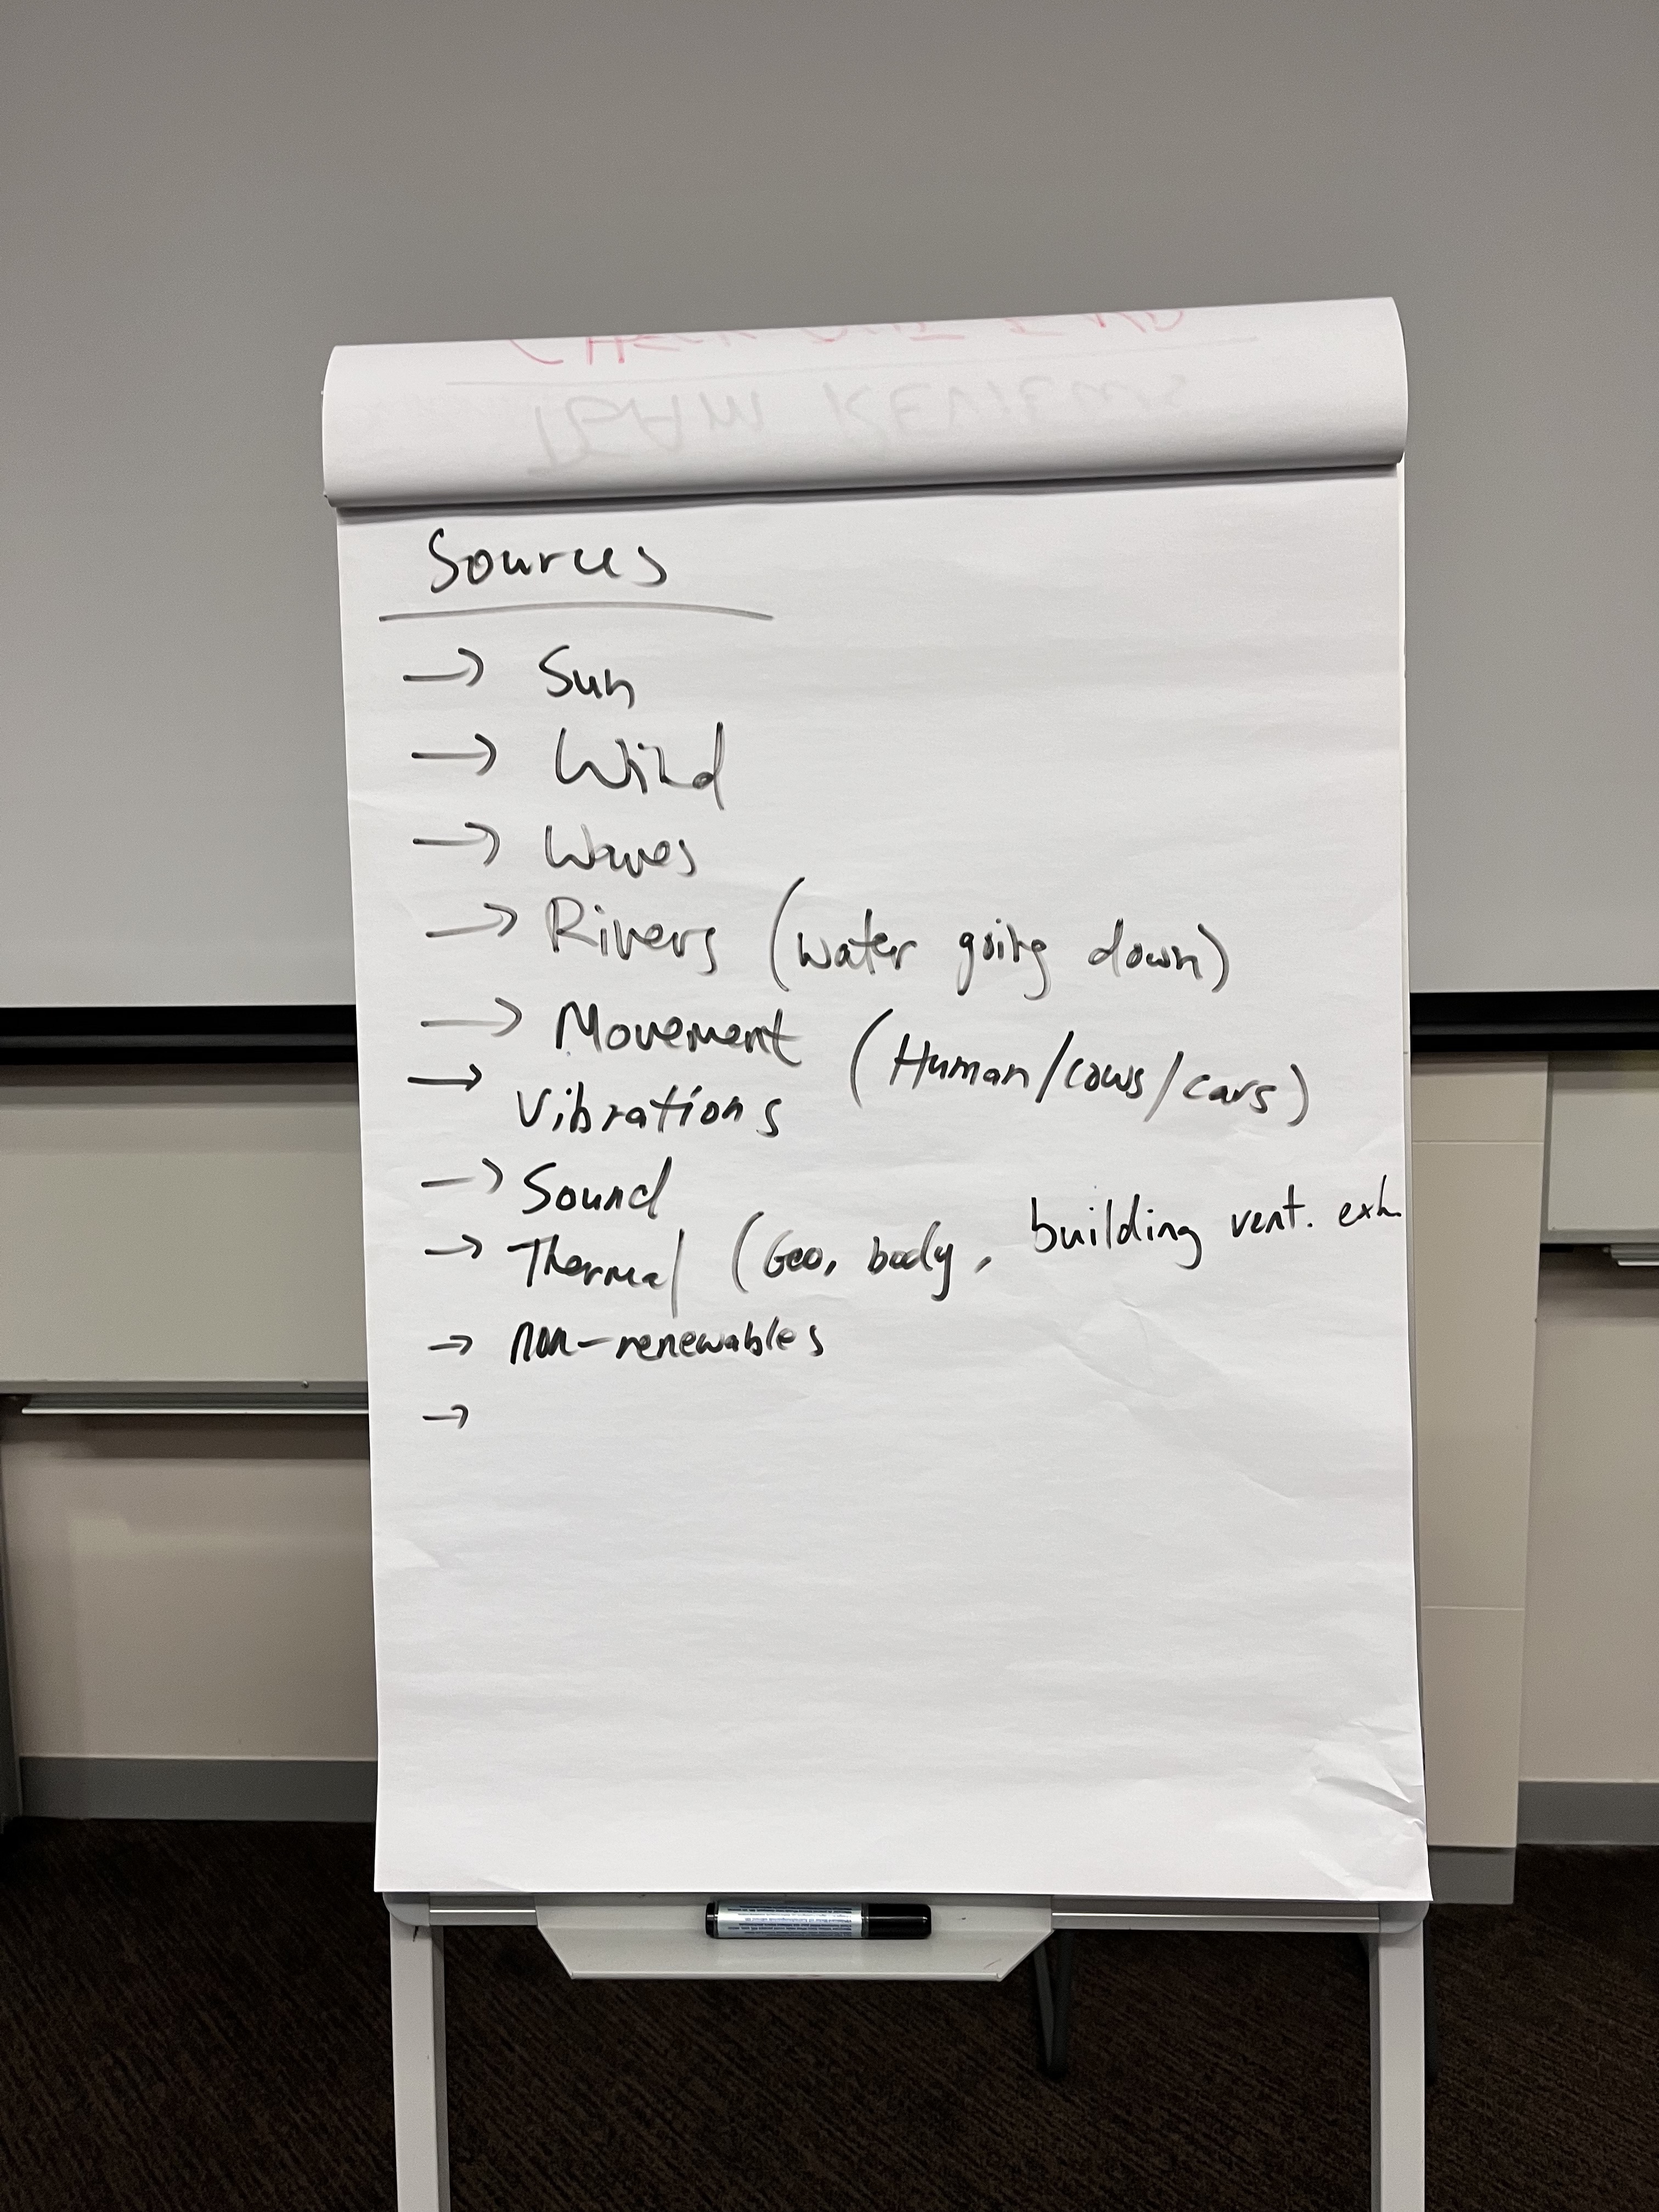 TEAM REVIEWS
Sources
→ Sun
→ Wind
→ Waves
→ Rivers (water going down)
→ Movement (Human/cows/cars)
→ Vibrations
→ Sound
→ Thermal (Geo, body, building vent. exh.
→ non-renewables
→